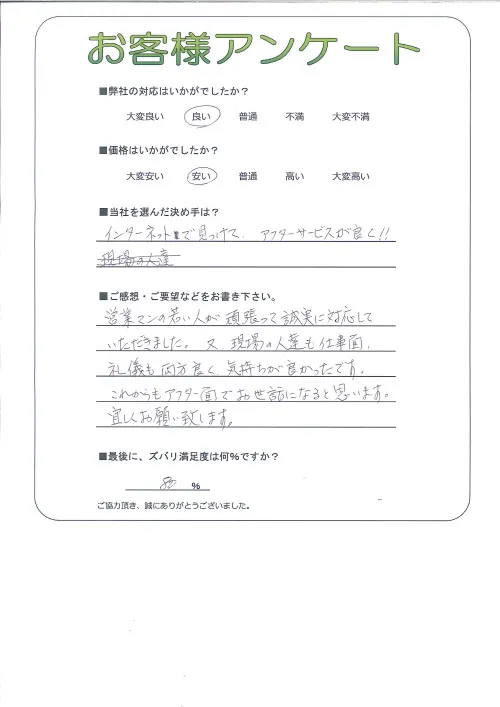 お客様アンケート
■弊社の対応はいかがでしたか？
大変良い 良い 普通 不満 大変不満
■価格はいかがでしたか？
大変安い 安い 普通 高い 大変高い
■当社を選んだ決め手は？
インターネットで見つけて、アフターサービスが良く!!
現場の人達
■ご感想・ご要望などをお書き下さい。
営業マンの若い人が頑張って誠実に対応して
いただきました。又、現場の人達も仕事面、
礼儀も両方良く、気持ちが良かったです。
これからもアフター面でお世話になると思います。
宜しくお願い致します。
■最後に、ズバリ満足度は何％ですか？
%
ご協力頂き、誠にありがとうございました。